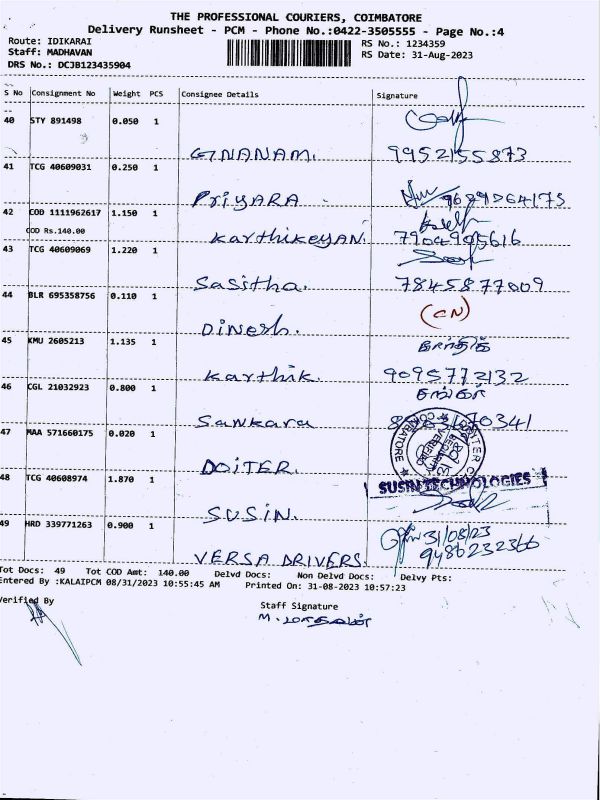 THE PROFESSIONAL COURIERS, COIMBATORE
Delivery Runsheet - PCM - Phone No.:0422-3505555 - Page No.:4
Route: IDIKARAI
RS No.: 1234359
Staff: MADHAVAN
RS Date: 31-Aug-2023
DRS No.: DCJB123435904
S No Consignment No Weight PCS Consignee Details Signature
40 STY 891498 0.050 1
GNANAM. 9952155873
41 TCG 40609031 0.250 1
PRIYARA
42 COD 1111962617 1.150 1
COD Rs.140.00
KARTHIKEYAN.
43 TCG 40609069 1.220 1
Sasitha. 7845877009
44 BLR 695358756 0.110 1
(CN)
DINESh.
45 KMU 2605213 1.135 1
கார்திக்
Karthik. 9095772132
46 CGL 21032923 0.800 1
சங்கர்
Sankara
47 MAA 571660175 0.020 1
COIMBATORE
DOITER.
48 TCG 40608974 1.870 1
SUSIN TECHNOLOGIES
SUSIN.
49 HRD 339771263 0.900 1
31/08/23
VERSA DRIVERS. 9486232366
Tot Docs: 49 Tot COD Amt: 140.00 Delvd Docs: Non Delvd Docs: Delvy Pts:
Entered By :KALAIPCM 08/31/2023 10:55:45 AM Printed On: 31-08-2023 10:57:23
Verified By
Staff Signature
M. மாதவன்